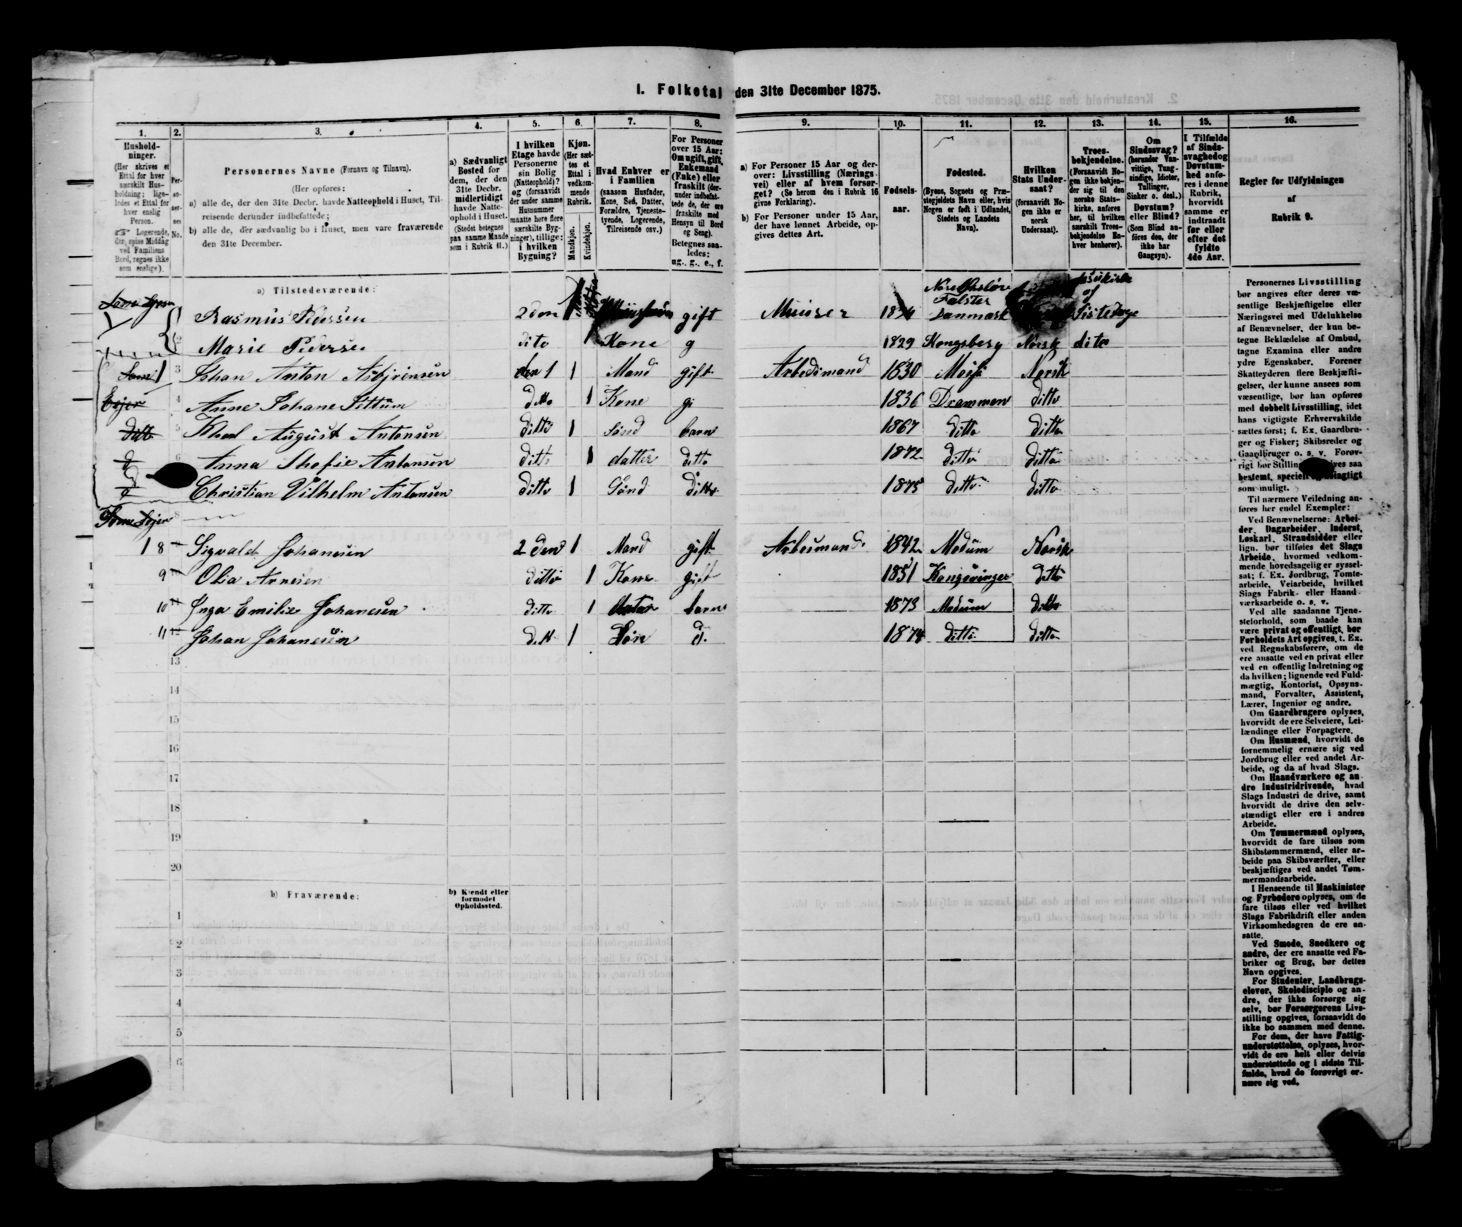 1. Folketal den 31te December 1875.
1. 2. 3. 4. 5. 6. 7. 8. 9. 10. 11. 12. 13. 14. 15. 16.
Husholdninger.
(Her skrives et Ettal for hver særskilt Husholdning; ligeledes et Ettal for hver enslig Person.
Logerende, der spise Middag ved Familiens Bord, regnes ikke som enslige).
Personernes No.
Personernes Navne (Fornavn og Tilnavn).
(Her opføres:
a) alle de, der den 31te Decbr. havde Natteophold i Huset, Tilreisende derunder indbefattede;
b) alle de, der sædvanlig bo i Huset, men vare fraværende den 31te December.
a) Sædvanligt Bosted for dem, der den 31te Decbr. midlertidigt havde Natteophold i Huset.
(Stedet betegnes paa samme Maade som i Rubrik 11.)
I hvilken Etage havde Personerne sin Bolig (Natteophold)?
Kjøn.
(Her sættes et Ettal i vedkommende Rubrik.
Mandkjøn. Kvindekjøn.
Hvad Enhver er i Familien
(saasom Husfader, Kone, Søn, Datter, Forældre, Tjenestetyende, Logerende, Tilreisende osv.)
For Personer over 15 Aar: Om ugift, gift, Enkemand (Enke) eller fraskilt
Betegnes saaledes: ug., g., e., f.
a) For Personer 15 Aar og derover: Livsstilling (Næringsvei) eller af hvem forsørget? (Se herom den i Rubrik 16 givne Forklaring).
b) For Personer under 15 Aar, der have lønnet Arbeide, opgives dettes Art.
Fødselsaar.
Fødested.
(Byens, Sognets og Præstegjeldets Navn eller, hvis Nogen er født i Udlandet, Stedets og Landets Navn).
Hvilken Stats Undersaat?
(forsaavidt Nogen ikke er norsk Undersaat).
Troesbekjendelse.
(Forsaavidt Nogen ikke bekjender sig til den norske Statskirke, anføres her, til hvilken særskilt Troesbekjendelse Enhver henhører).
Om Sindssvag? (herunder Vanvittige, Tungsindige, Idioter, Tullinger, Sinker o. desl.) Døvstum? eller Blind?
(Som Blind anføres den, der ikke har Gangsyn).
I Tilfælde af Sindssvaghed og Døvstumhed anføres i denne Rubrik, hvorvidt samme er indtraadt før eller efter det fyldte 4de Aar.
Regler for Udfyldningen af Rubrik 9.
a) Tilstedeværende:
Rasmus Pedersen 2den gift Murer Falster Danmark
Marie Pedersen dito Kone g 1829 Kongsberg Norsk dito
3 Johan Anton Asbjørensen 1 1 Mand gift Arbeidsmand 1830 Moss Norsk
4 Anne Johane ditto 1 Kone gi 1836 Drammen ditto
5 Karl August Antonsen ditto 1 Sønd barn 1867 ditto ditto
6 Anna Sofie Antonsen ditto 1 datter ditto 1872 ditto ditto
Christian Vilhelm Antonsen ditto 1 Sønd ditto 1875 ditto ditto
1 8 Sigvald Johanesen 2den 1 Mand gift Arbeismand 1842 Modum Norsk
9 Olia Arnesen ditto 1 Kone gift 1851 Kongsvinger ditto
10 Inga Emilie Johanesen ditto 1 barn 1873 Modum ditto
11 Johan Johanesen ditt 1 Søn d. 1874 ditto ditto
13
14
15
16
17
18
19
20
b) Fraværende:
b) Kjendt eller formodet Opholdssted.
1
2
3
4
5
6
Personernes Livsstilling bør angives efter deres væsentlige Beskjæftigelse eller Næringsvei med Udelukkelse af Benævnelser, der kun betegne Beklædelse af Ombud, tagne Examina eller andre ydre Egenskaber. Forener Skatteyderen flere Beskjæftigelser, der kunne ansees som væsentlige, bør han opføres med dobbelt Livsstilling, idet hans vigtigste Erhvervskilde sættes først; f. Ex. Gaardbruger og Fisker; Skibsreder og Gaardbruger o. s. v. Forøvrigt bør Stillingen opgives saa bestemt, specielt og nøiagtigt som muligt.
Til nærmere Veiledning anføres her endel Exempler:
Ved Benævnelserne: Arbeider, Dagarbeider, Inderst, Løskarl, Strandsidder eller lign. bør tilføies det Slags Arbeide, hvormed vedkommende hovedsagelig er sysselsat; f. Ex. Jordbrug, Tomtearbeide, Veiarbeide, hvilket Slags Fabrik- eller Haandværksarbeide o. s. v.
Ved alle saadanne Tjenesteforhold, som baade kan være privat og offentligt, bør Forholdets Art opgives, f. Ex. ved Regnskabsførere, om de ere ansatte ved en privat eller ved en offentlig Indretning og da hvilken; lignende ved Fuldmægtig, Kontorist, Opsynsmand, Forvalter, Assistent, Lærer, Ingeniør og andre.
Om Gaardbrugere oplyses, hvorvidt de ere Selveiere, Leilændinge eller Forpagtere.
Om Husmænd, hvorvidt de fornemmelig ernære sig ved Jordbrug eller ved andet Arbeide, og da af hvad Slags.
Om Haandværkere og andre Industridrivende, hvad Slags Industri de drive, samt hvorvidt de drive den selvstændigt eller ere i andres Arbeide.
Om Tømmermænd oplyses, hvorvidt de fare tilsøs som Skibstømmermænd, eller arbeide paa Skibsværfter, eller beskjæftiges ved andet Tømmermandsarbeide.
I Henseende til Maskinister og Fyrbødere oplyses, om de fare tilsøs eller ved hvilket Slags Fabrikdrift eller anden Virksomhedsgren de ere ansatte.
Ved Smede, Snedkere og andre, der ere ansatte ved Fabriker og Brug, bør dettes Navn opgives.
For Studenter, Landbrugselever, Skoledisciple og andre, der ikke forsørge sig selv, bør Forsørgerens Livsstilling opgives, forsaavidt de ikke bo sammen med denne.
For dem, der have Fattigunderstøttelse, oplyses, hvorvidt de ere helt eller delvis understøttede og i sidste Tilfælde, hvad de forøvrigt ernære sig ved.